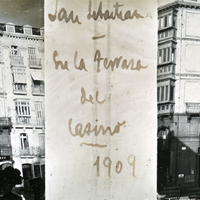 San Sebastian
En la Terraza
del
Casino
1909